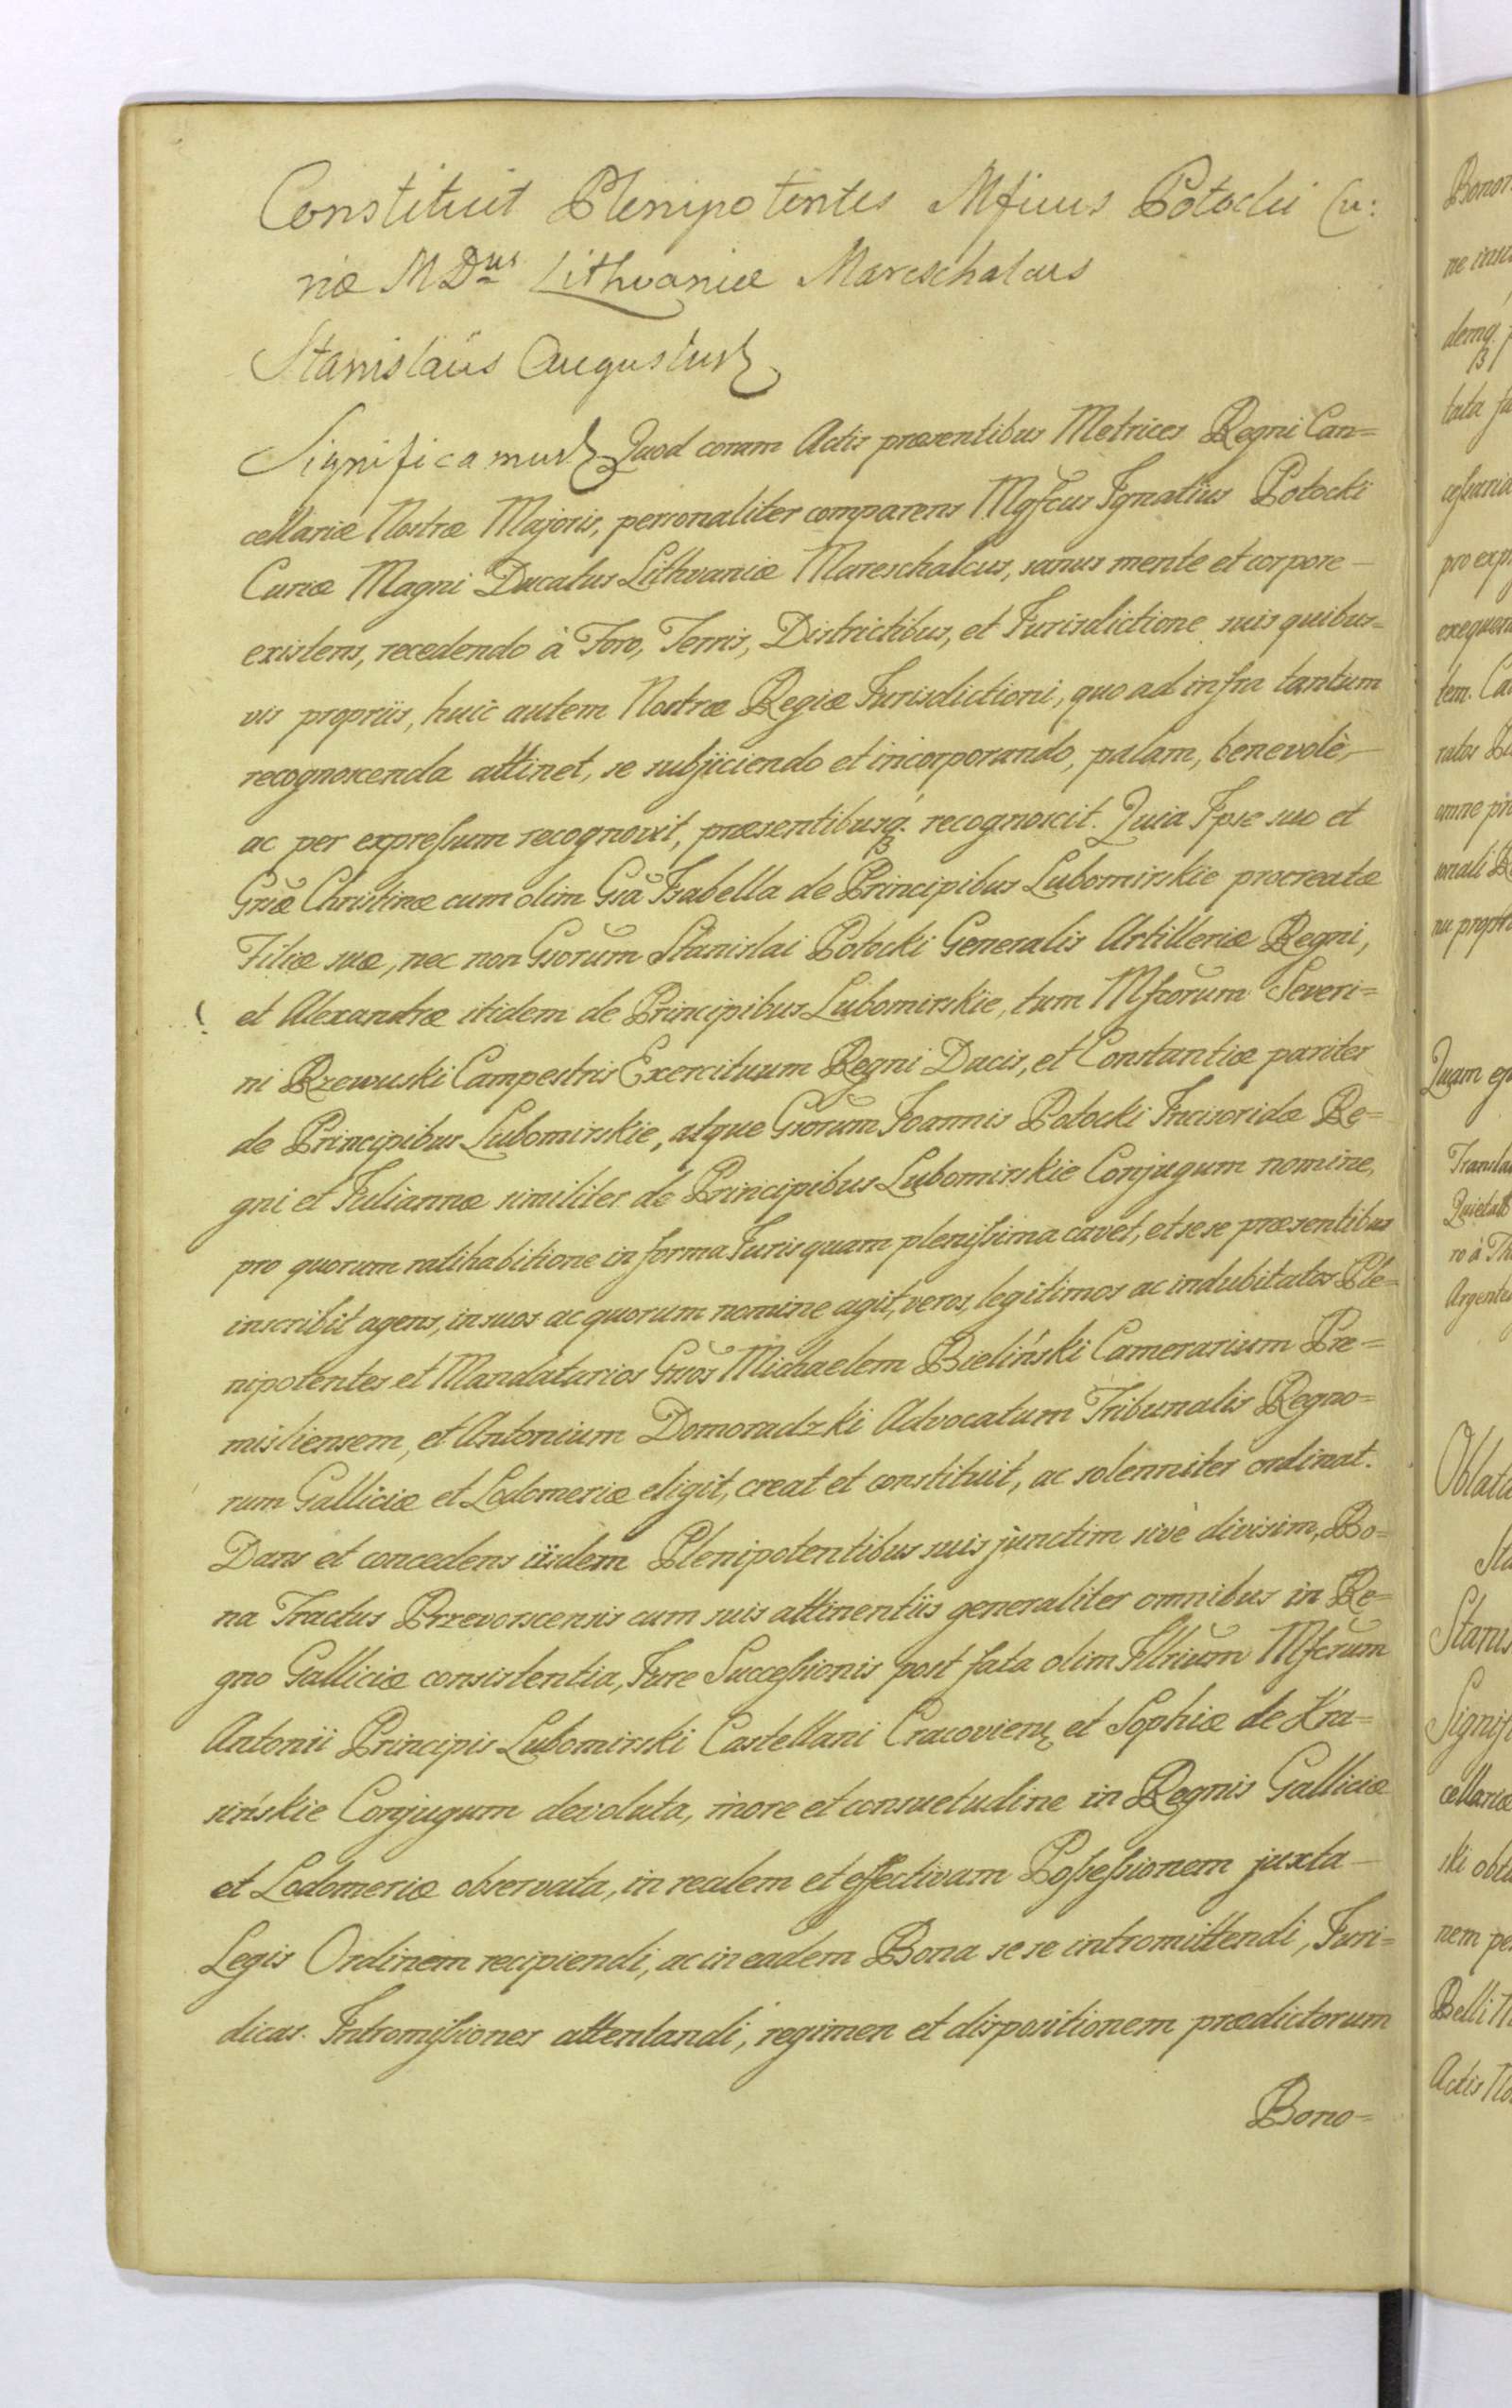 Constituit Plenipotentes Mficus Potocki Cu:
riæ M Dus Lithvaniæ Mareschalcus
Stanislaüs Augustus
Significamus Quod coram Actis præsentibus Metrices Regni Can=
cellariæ Nostræ Majoris, personaliter comparens Mgfcus Ignatius Potocki
Curiæ Magni Ducatus Lithvaniæ Mareschalcus, sanus mente et corpore
existens, recedendo à Foro, Terris, Districtibus, et Jurisdictione suis quibus=
vis propriis, huic autem Nostræ Regiæ Jurisdictioni, quo ad infra tantum
recognoscenda attinet, se subjiciendo et incorporando, palam, benevolè,
ac per expressum recognovit, præsentibusq. recognoscit. Quia Ipse suo et
Gsæ Christinæ cum olim Gsa Isabella de Principibus Lubomirskie procreatæ
Filiæ suæ, nec non Gsorum Stanislai Potocki Generalis Artilleriæ Regni,
et Alexandræ itidem de Principibus Lubomirskie, tum Mfcorum Severi=
ni Rzewuski Campestris Exercituum Regni Ducis, et Constantiæ pariter
de Principibus Lubomirskie, atque Gsorum Joannis Potocki Incisoridæ Re=
gni et Juliannæ similiter de Principibus Lubomirskie Conjugum nomine,
pro quorum ratihabitione in forma Juris quam plenissima cavet, et sese præsentibus
inscribit agens, in suos ac quorum nomine agit, veros, legitimos ac indubitatos Ple=
nipotentes et Mandatarios Gsos Michaelem Bieliński Camerarium Pre=
misliensem, et Antonium Domoradzki Advocatum Tribunalis Regno=
rum Galliciæ et Lodomeriæ eligit, creat et constituit, ac solenniter ordinat.
Dans et concedens iisdem Plenipotentibus suis junctim sivè divisim, Bo=
na Tractus Przevorscensis cum suis attinentiis generaliter omnibus in Re=
gno Galliciæ consistentia, Jure Successionis post fata olim Illrium Mfcrum
Antonii Principis Lubomirski Castellani Cracovien, et Sophiæ de Kra=
sińskie Conjugum devoluta, more et consuetudine in Regnis Galliciæ
et Lodomeriæ observata, in realem et effectivam Possessionem juxta
Legis Ordinem recipiendi, ac in eadem Bona sese intromittendi, Juri=
dicas Intromissiones attentandi, regimen et dispositionem prædictorum
Bono=